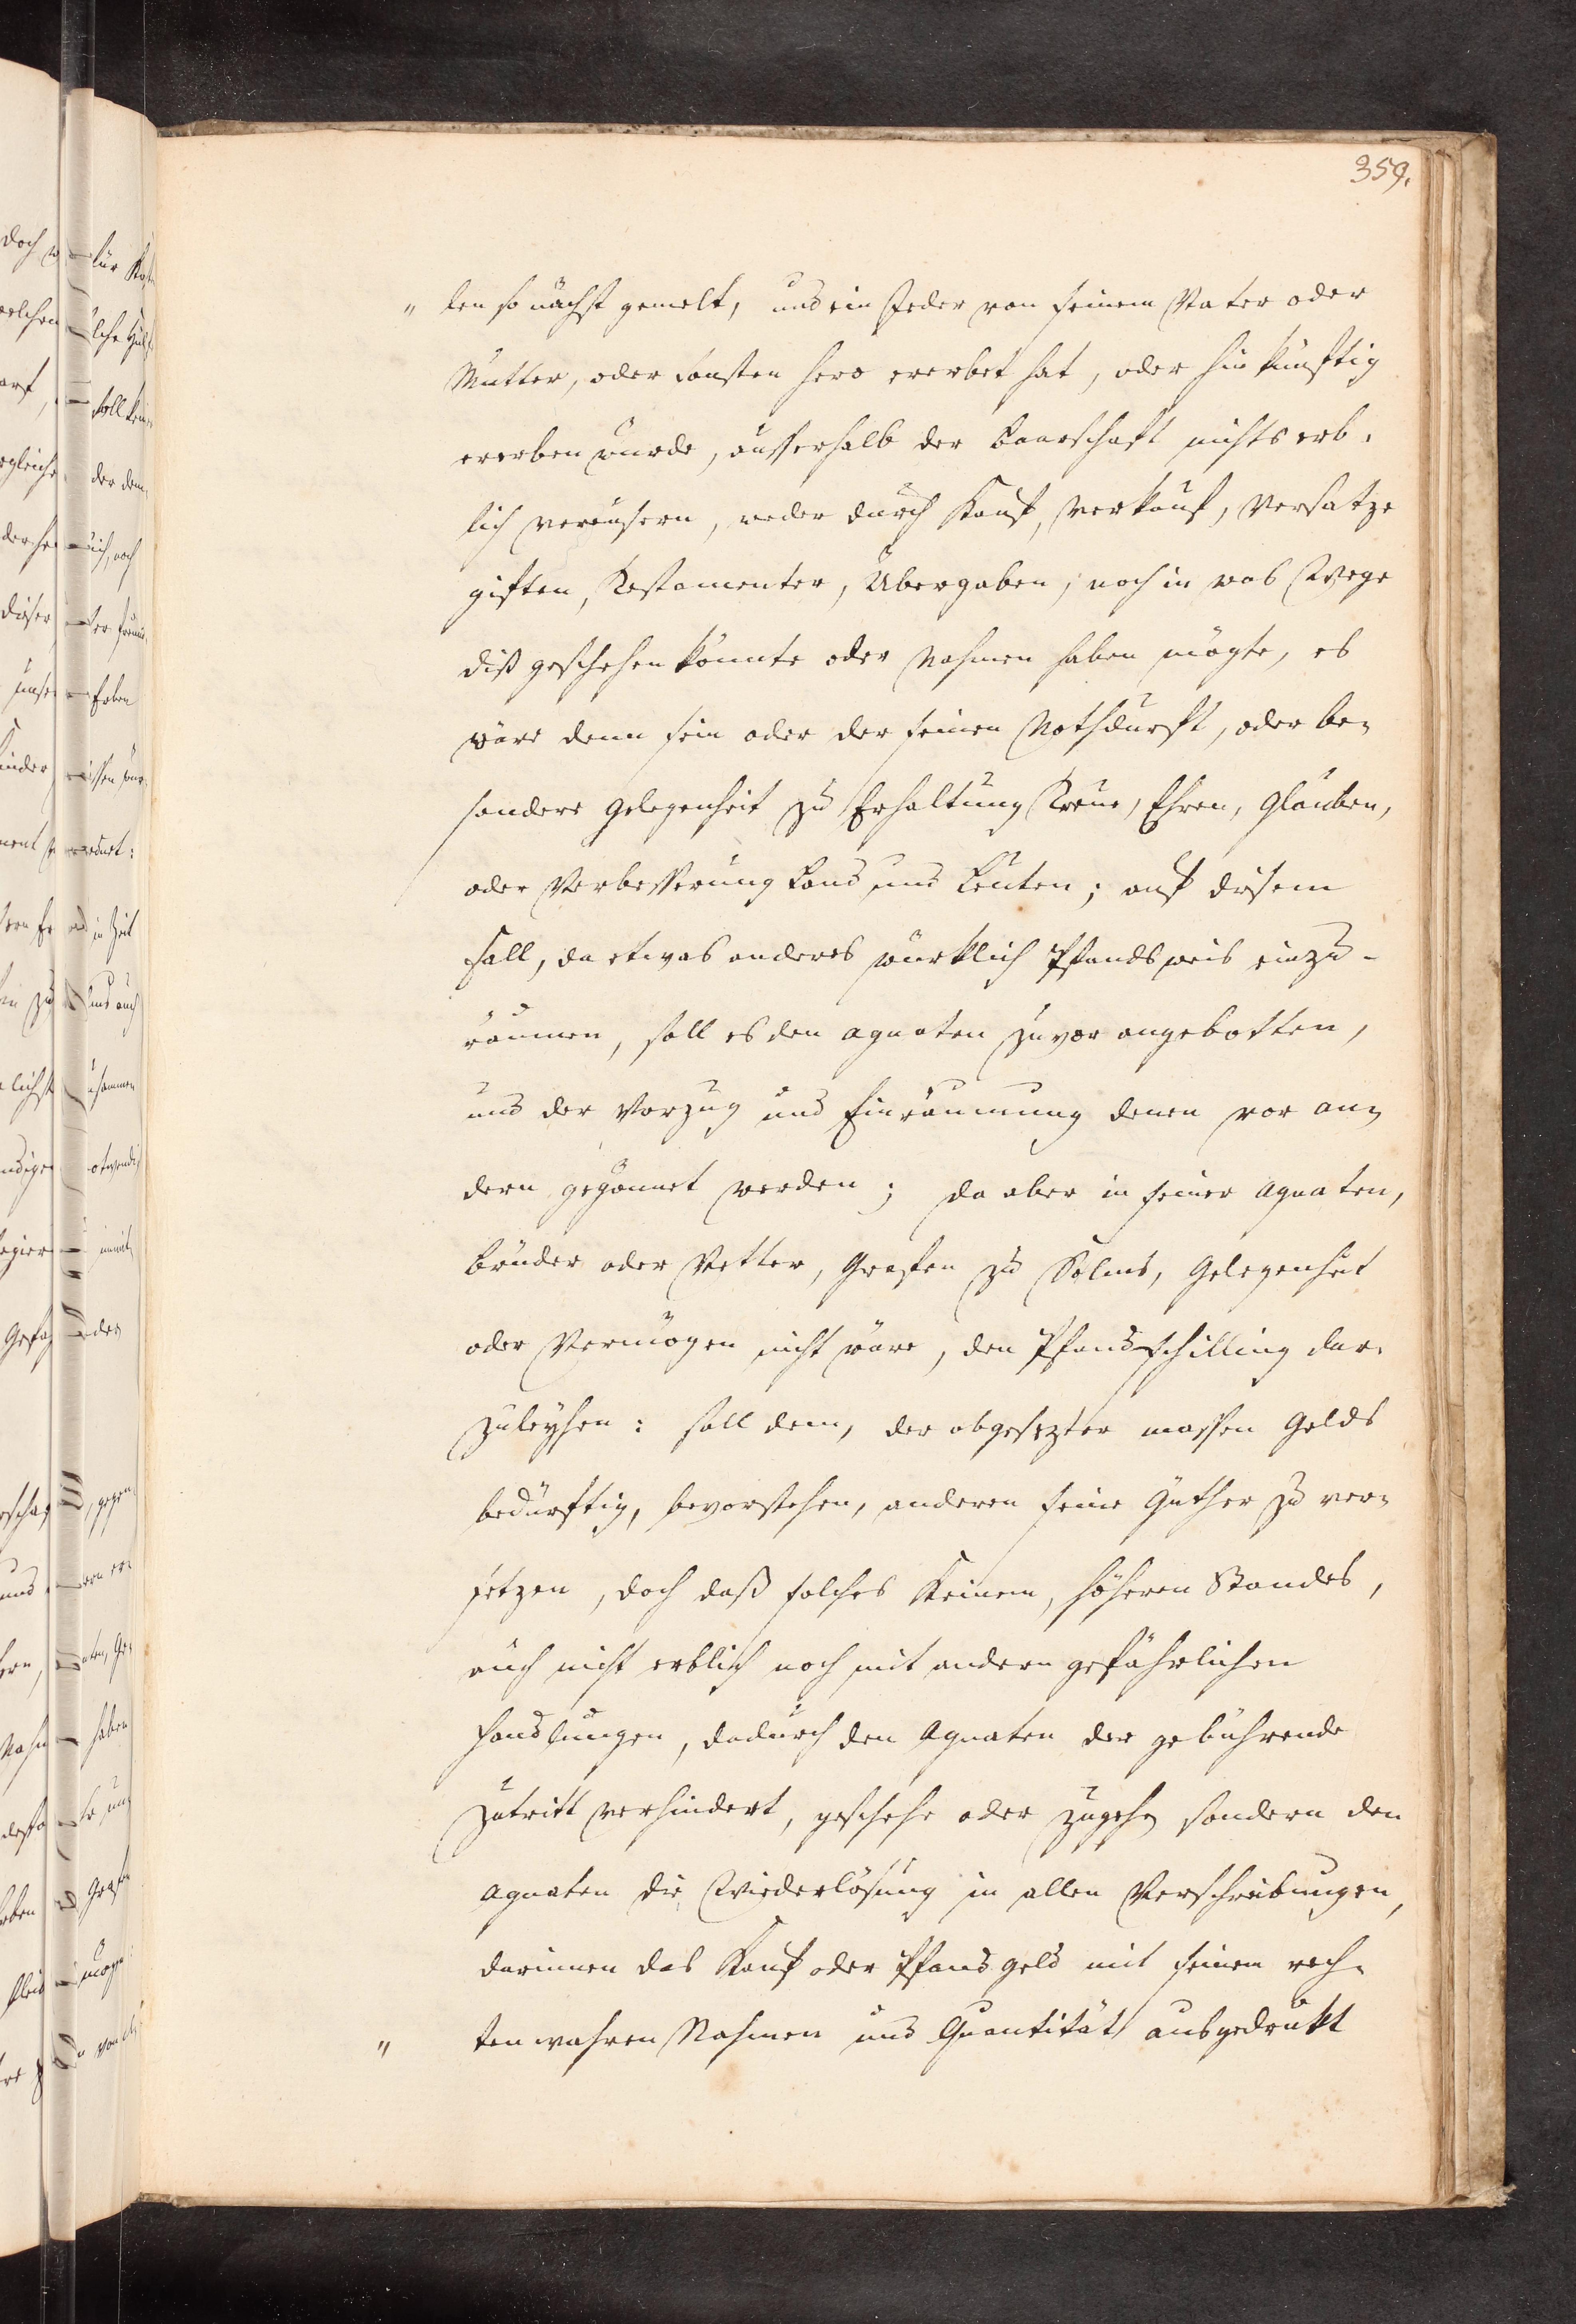 359.
" ten so nächst gemelt, und ein Jeder von seinem Vater oder
Mutter, oder sonsten hero ererbet hat, oder hin künftig
ererben wurde, ausserhalb der Baarschaft nichts erb-
lich vereusern, weder durch Kauf, Verkauf, Versatze
giften, Testamenter, Übergaben, noch in was Wege
diß geschehen könnte oder Nahmen haben mögte, es
wäre denn sein oder der seinen Nothdurft, oder be-
sondere Gelegenheit zu Erhaltung Treue, Ehren, Glauben,
oder Verbesserung Land und Leuten; auf disem
Fall, da etwas anderes würklich Pfandsweis einzu-
räumen, soll es den agnaten zuvor angebotten,
und der Vorzug und Einräumung denen vor an-
dern gegönnet werden; da aber in seiner Agnaten,
brüder oder Vetter, Grafen zu Solms, Gelegenheit
oder Vermögen nicht wäre, den Pfandschilling dar-
zuleyhen: soll dem, der obgesezter massen Gelds
bedürftig, bevorstehen, anderen seine Güther zu ver-
setzen, doch daß solches Keinem, höheren Standes,
auch nicht erblich noch mit andern gefährlichen
Handlungen, dadurch den Agnaten der gebührende
Zutritt verhindert, geschehe oder zugehe, sondern den
agnaten die Wiederlösung in allen Verschreibungen,
darinnen das Kauf oder Pfandgeld mit seinem rech-
" ten wahren Nahmen und Quantität ausgedrukt